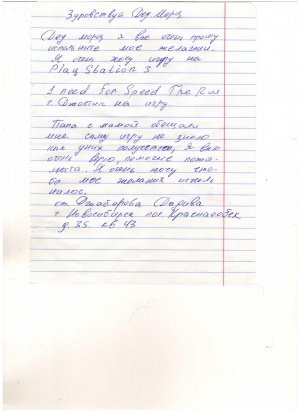 Здравствуй Дед Мороз
Дед мороз я вас очень прошу
исполните мое желания.
Я очень хочу игру на
Play Station 3
1 need For Speed The Run
г. Джостик на игру.
Папа с мамой обещали
мне саму игру не знаю
как у них получется, я вам
очень верю, помогите пожа-
леста. Я очень хочу что-
бы мое желания исполь
нилос.
от Джаборова Дарива
г. Новосибирск пос Краснообск
д. 35 кв 43